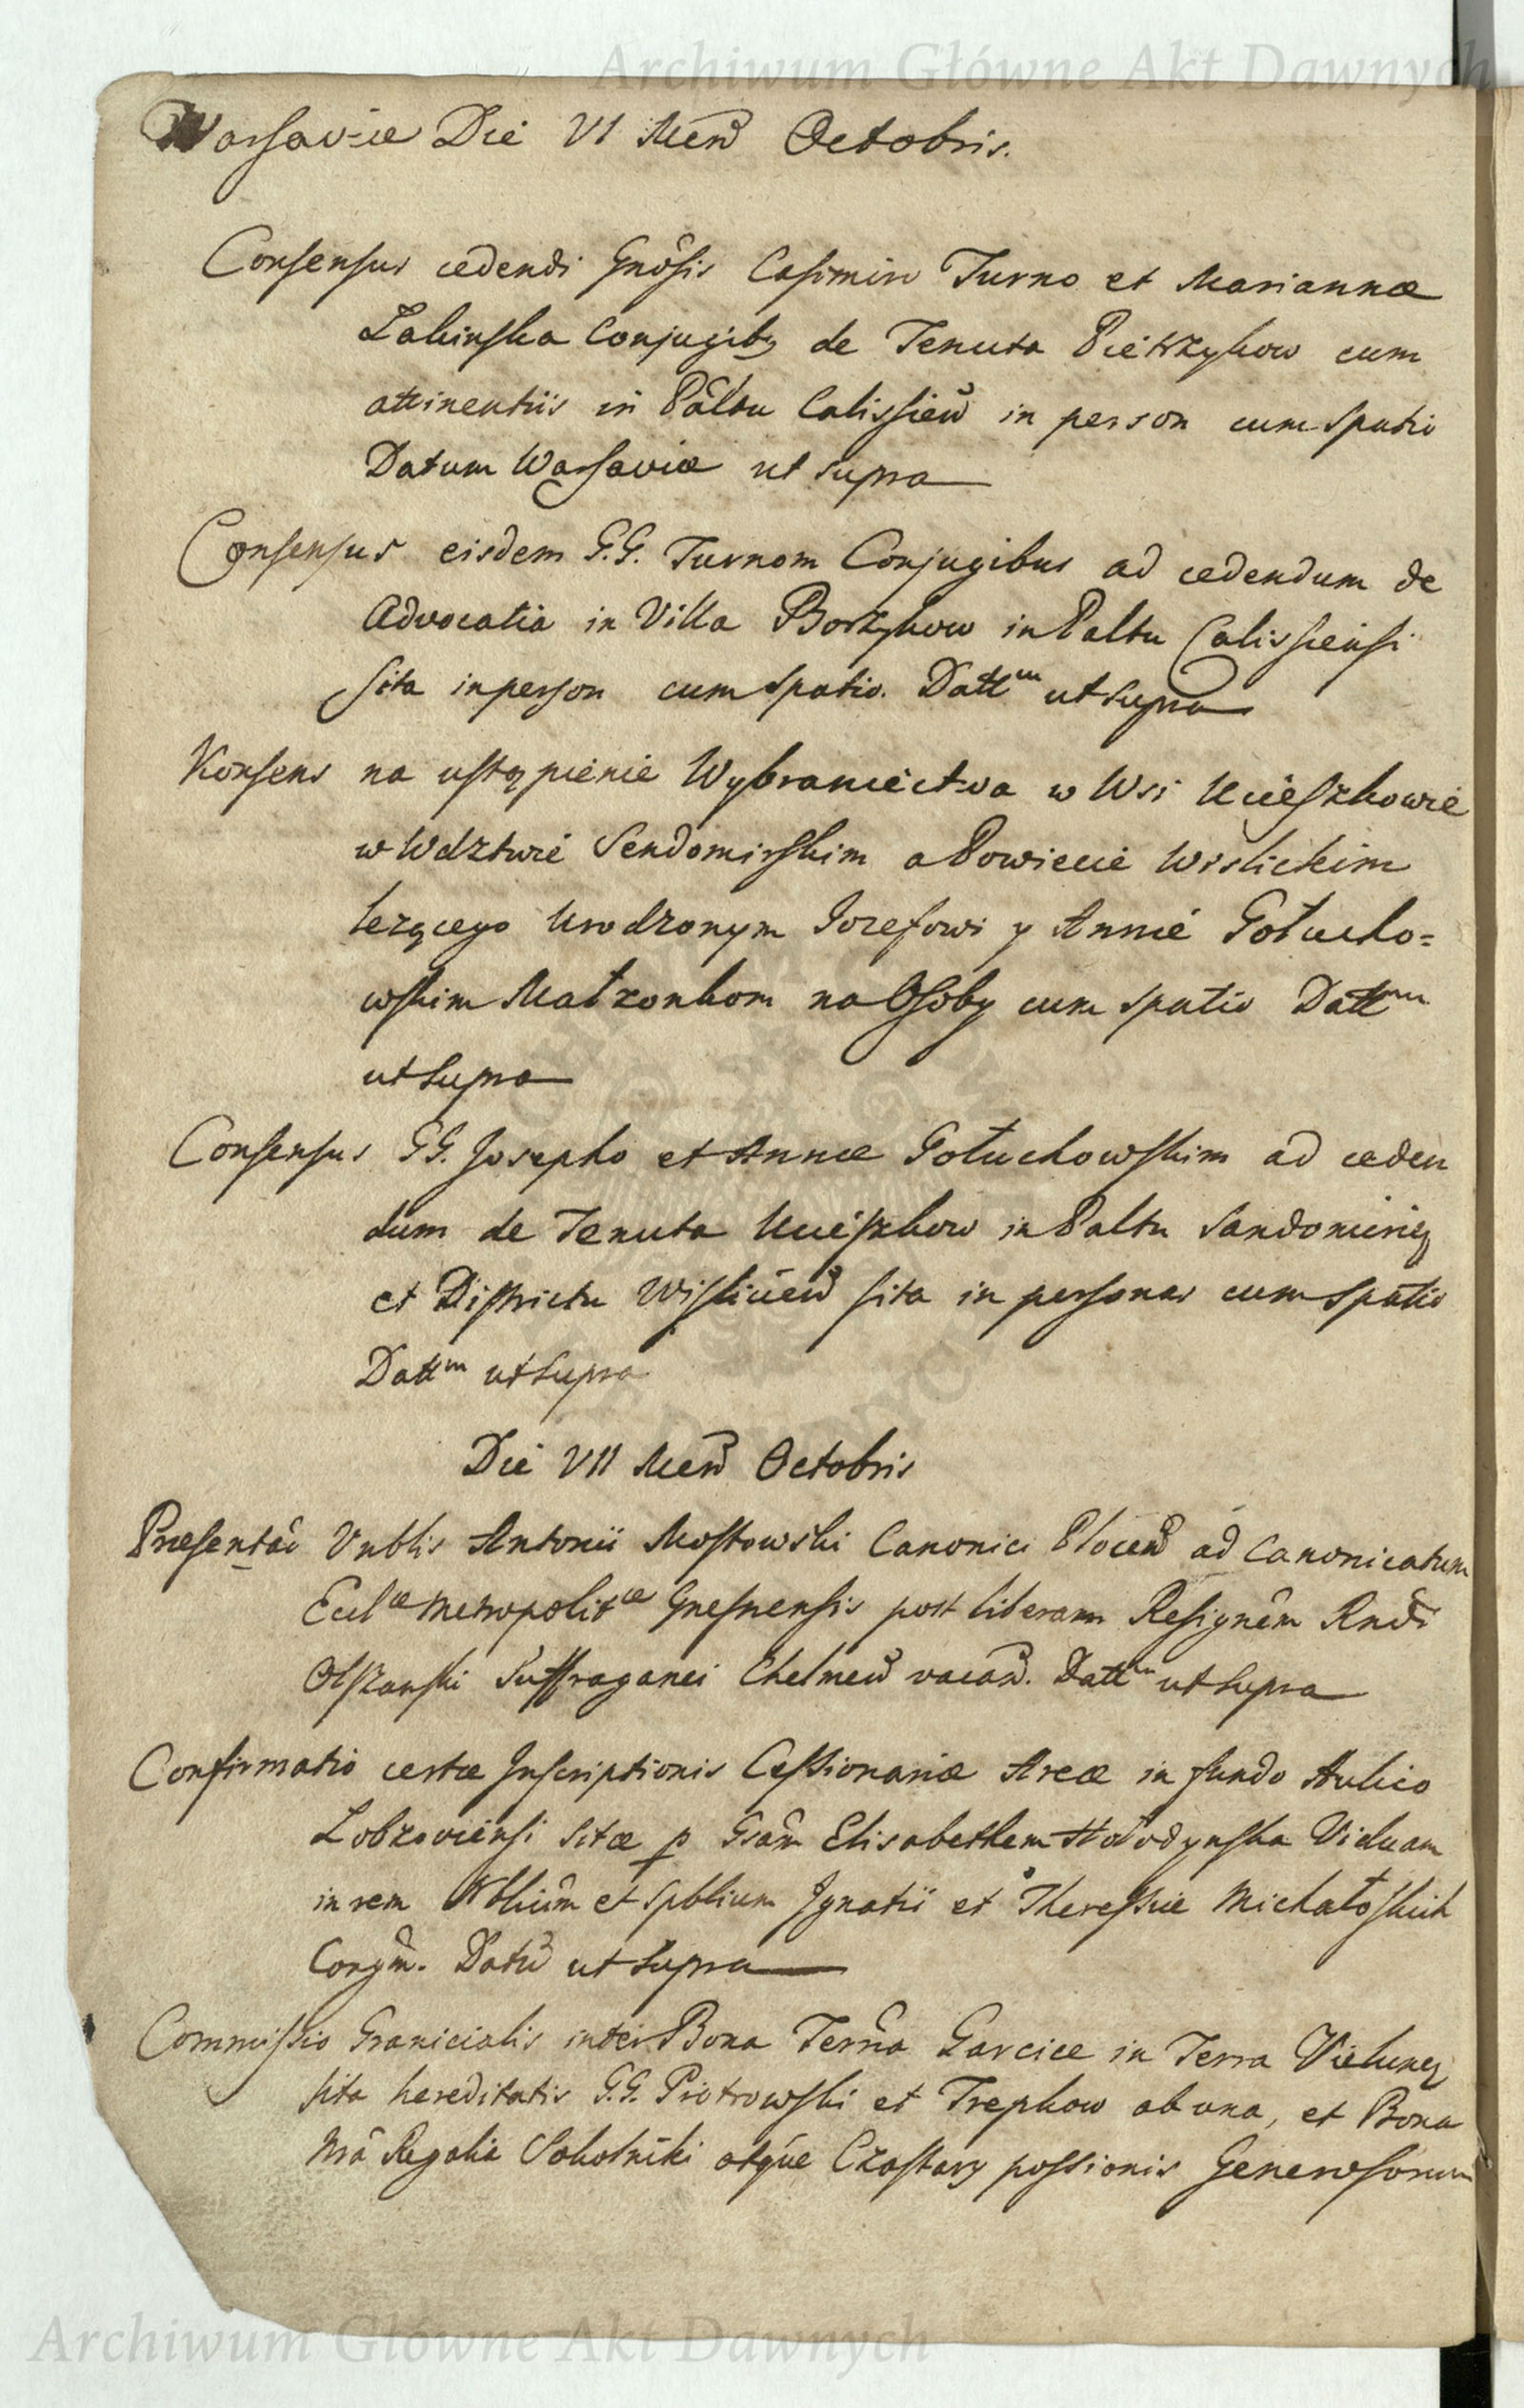 Archiwum Główne Akt Dawnych
Warsaviæ Die VI Mens̃ Octobris.
Consensus cedendi Gnõsis Casimiro Turno et Mariannæ
Zakinska Conjugibq de Tenuta Pietrzykow cum
attinentiis in Pãltu Calissieñ in person cum spatio
Datum Warsaviæ ut supra
Consensus eisdem G.G. Turnom Conjugibus ad cedendum de
Advocatia in Villa Borzykow in Paltu Calissiensi
sita in person cum spatio. Dattm ut supra
Konsens na ustąpienie Wybraniectwa w Wsi Ucieszkowie
w Wdztwie Sendomirskim a Powiecie Wislickim
lezącego Urodzonym Jozefowi y Annie Gołucho=
wskim Małzonkom na Osoby cum spatio Dattm
ut supra
Consensus GG. Josepho et Annæ Gołuchowskim ad ceden
dum de Tenuta Ucieszkow in Paltu Sandomirieq
et Districtu Wisliceñ sita in personas cum spatio
Dattm ut supra
Die VII Mens̃ Octobris
Præsentãõ Vnblis Antonii Mostowski Canonici Ploceñ ad Canonicatum
Eclæ Metropolitæ Gnesnensis post liberam Resignẽm Rndi
Olszanski Suffraganei Chelmeñ vacañ. Dattm ut supra
Confirmatio certæ Inscriptionis Cessionariæ Areæ in fundo Aulico
Lobzoviensi sitæ p Gsãm Elisabethem Hołodynska Viduam
in rem Nblium et Spblium Ignatii et Theressiæ Michałoskich
Congm̃. Datũ ut supra
Commissio Granicialis inter Bona Terrña Garcice in Terra Vieluneq
sita hereditatis G.G. Piotrowski et Trepkow ab una, et Bona
Nrã Regalia Sokolniki atque Czastary possionis Generosorum
Archiwum Główne Akt Dawnych